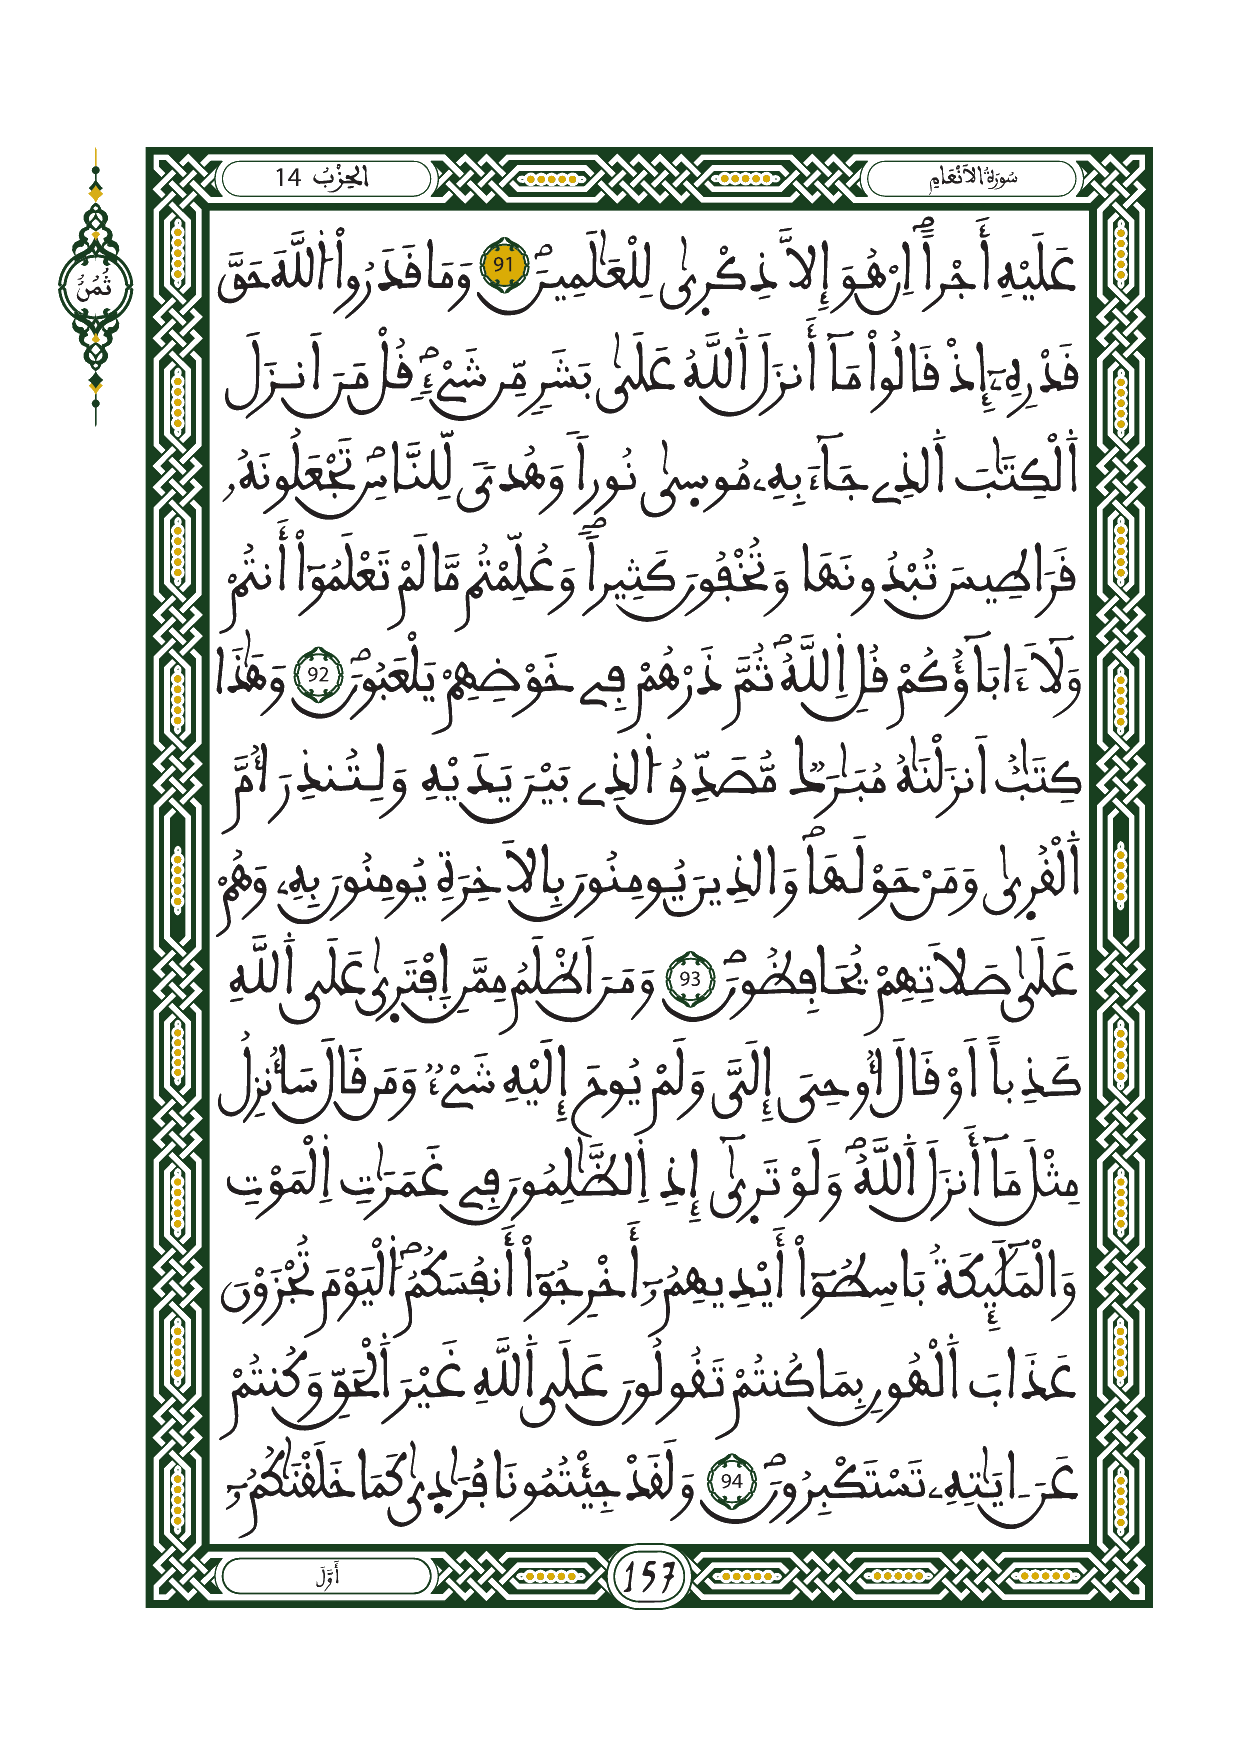 سُورَةُ الاَنْعَامِ
الحِزْبُ 14
ثُمُنُ
عَلَيْهِ أَجْراًۖ اِنْ هُوَ إِلاَّ ذِكْر۪ىٰ لِلْعَٰلَمِينَۖ 91 وَمَا قَدَرُواْ اُ۬للَّهَ حَقَّ
قَدْرِهِۦٓ إِذْ قَالُواْ مَآ أَنزَلَ اَ۬للَّهُ عَلَىٰ بَشَرٍ مِّن شَےْءٍۖ قُلْ مَنَ اَنزَلَ
اَ۬لْكِتَٰبَ اَ۬لذِے جَآءَ بِهِۦ مُوس۪ىٰ نُوراٗ وَهُدىٗ لِّلنَّاسِۖ تَجْعَلُونَهُۥ
قَرَاطِيسَ تُبْدُونَهَا وَتُخْفُونَ كَثِيراٗۖ وَعُلِّمْتُم مَّا لَمْ تَعْلَمُوٓاْ أَنتُمْ
وَلَآ ءَابَآؤُكُمْ قُلِ اِ۬للَّهُۖ ثُمَّ ذَرْهُمْ فِے خَوْضِهِمْ يَلْعَبُونَۖ 92 وَهَٰذَا
كِتَٰبٌ اَنزَلْنَٰهُ مُبَٰرَكٞ مُّصَدِّقُ اُ۬لذِے بَيْنَ يَدَيْهِ وَلِتُنذِرَ أُمَّ
اَ۬لْقُر۪ىٰ وَمَنْ حَوْلَهَاۖ وَالذِينَ يُومِنُونَ بِالاَخِرَةِ يُومِنُونَ بِهِۦ وَهُمْ
عَلَىٰ صَلَاتِهِمْ يُحَافِظُونَۖ 93 وَمَنَ اَظْلَمُ مِمَّنِ اِ۪فْتَر۪ىٰ عَلَى اَ۬للَّهِ
كَذِباً اَوْ قَالَ أُوحِىَ إِلَىَّ وَلَمْ يُوحَ إِلَيْهِ شَےْءٞ وَمَن قَالَ سَأُنزِلُ
مِثْلَ مَآ أَنزَلَ اَ۬للَّهُۖ وَلَوْ تَر۪ىٰٓ إِذِ اِ۬لظَّٰلِمُونَ فِے غَمَرَٰتِ اِ۬لْمَوْتِ
وَالْمَلَٰٓئِكَةُ بَاسِطُوٓاْ أَيْدِيهِمُۥٓ أَخْرِجُوٓاْ أَنفُسَكُمُۖ اُ۬لْيَوْمَ تُجْزَوْنَ
عَذَابَ اَ۬لْهُونِ بِمَا كُنتُمْ تَقُولُونَ عَلَى اَ۬للَّهِ غَيْرَ اَ۬لْحَقِّ وَكُنتُمْ
عَنَ ـ ايَٰتِهِۦ تَسْتَكْبِرُونَۖ 94 وَلَقَدْ جِئْتُمُونَا فُرَٰد۪ىٰ كَمَا خَلَقْنَٰكُمُۥٓ
أَوَّلَ
157